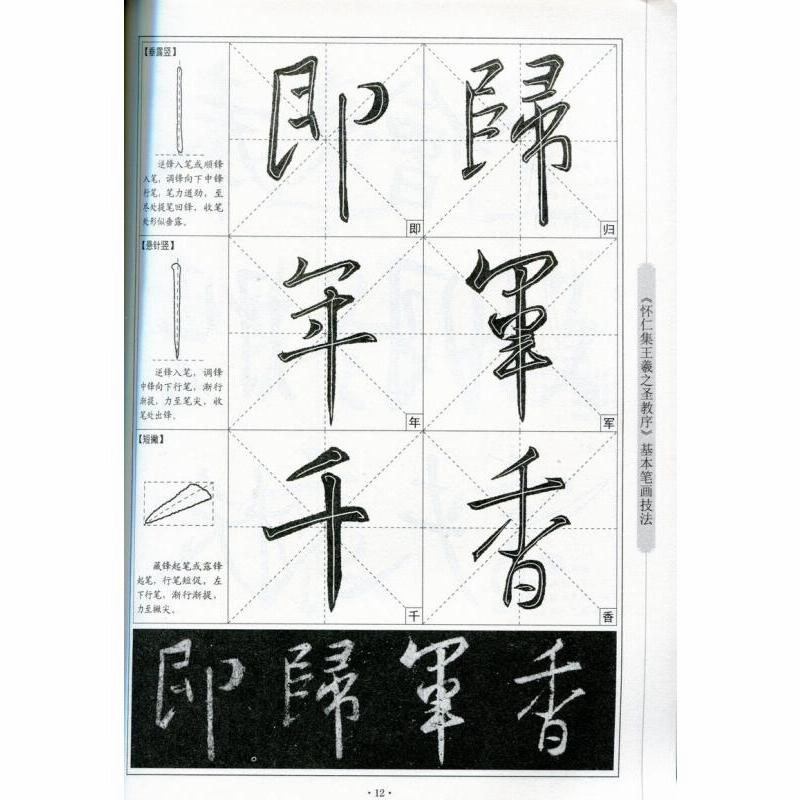 【垂露竖】
逆锋入笔或顺锋
入笔，调锋向下中锋
行笔，笔力遒劲，至
尽处提笔回锋，收笔
处形似垂露。
即
即
歸
归
【悬针竖】
逆锋入笔，调锋
中锋向下行笔，渐行
渐提，力至笔尖，收
笔处出锋。
年
年
軍
军
【短撇】
藏锋起笔或露锋
起笔，行笔短促，左
下行笔，渐行渐提，
力至撇尖。
千
千
香
香
即 歸 軍 香
《怀仁集王羲之圣教序》基本笔画技法
·12·